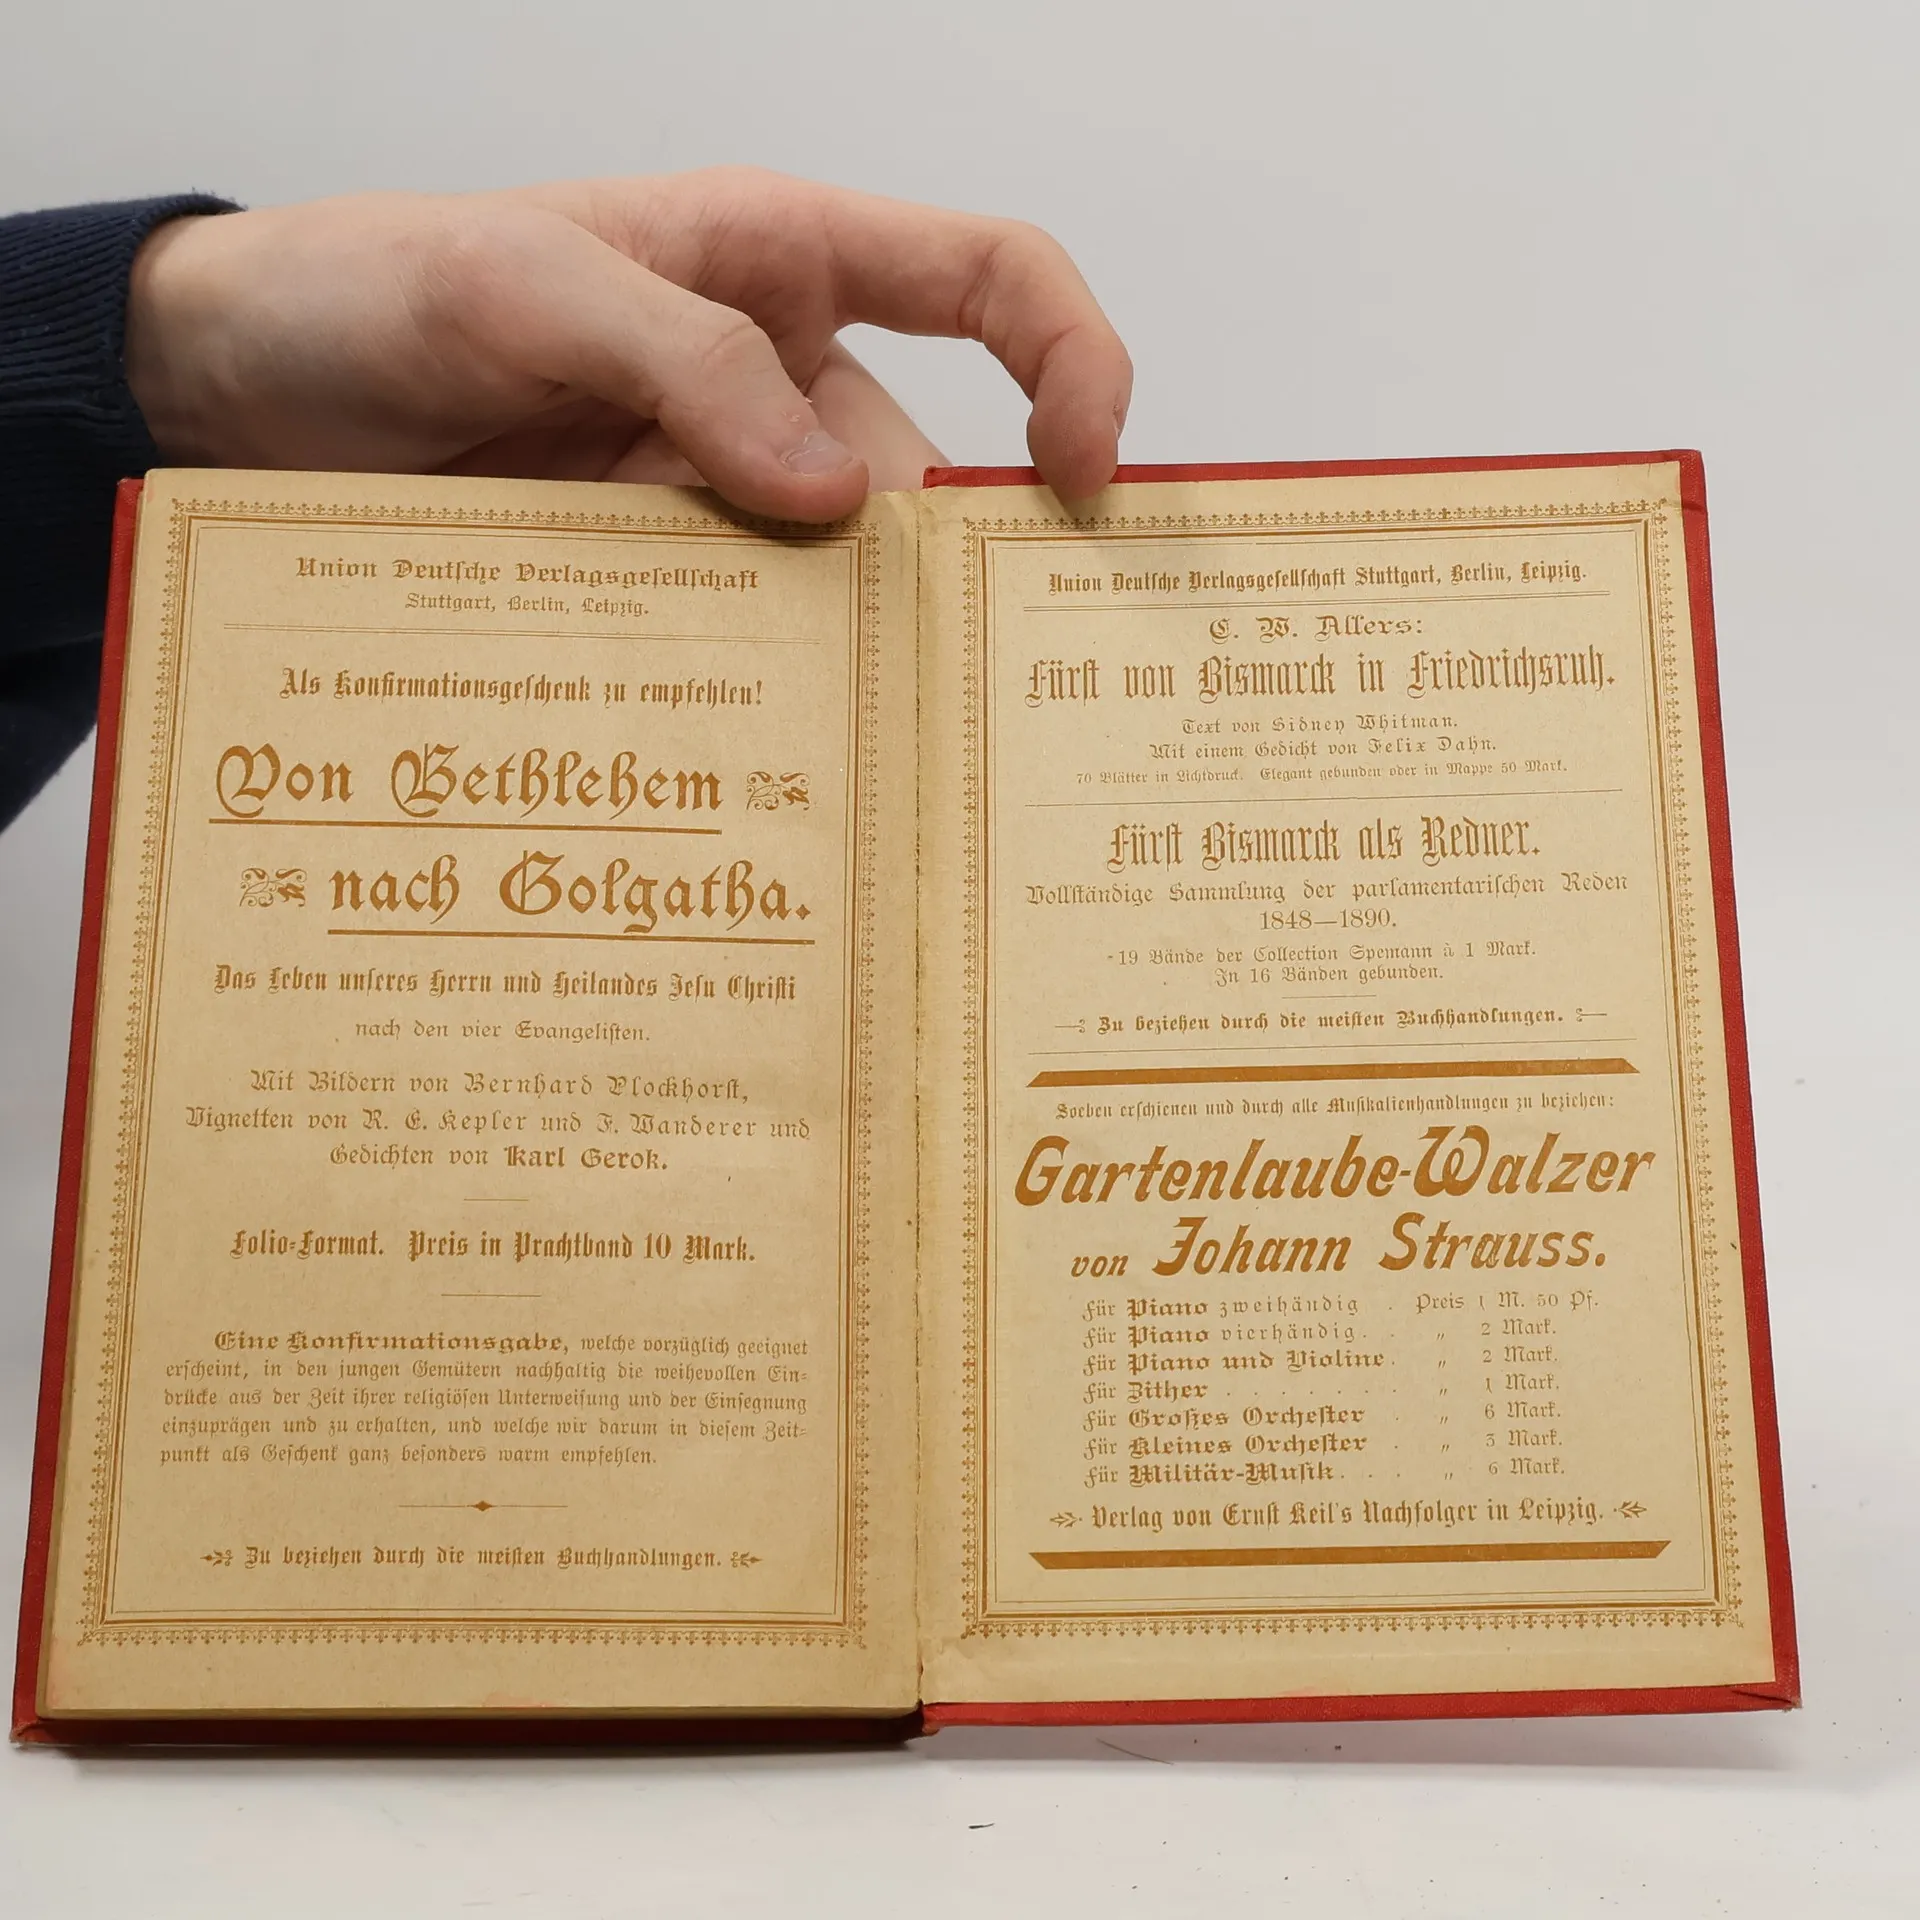 Union Deutsche Verlagsgesellschaft
Stuttgart, Berlin, Leipzig.
Als Konfirmationsgeschenk zu empfehlen!
Von Bethlehem
nach Golgatha.
Das Leben unseres Herrn und Heilandes Jesu Christi
nach den vier Evangelisten.
Mit Bildern von Bernhard Plockhorst,
Vignetten von R. E. Kepler und F. Wanderer und
Gedichten von Karl Gerok.
Folio-Format. Preis in Prachtband 10 Mark.
Eine Konfirmationsgabe, welche vorzüglich geeignet
erscheint, in den jungen Gemütern nachhaltig die weihevollen Ein-
drücke aus der Zeit ihrer religiösen Unterweisung und der Einsegnung
einzuprägen und zu erhalten, und welche wir darum in diesem Zeit-
punkt als Geschenk ganz besonders warm empfehlen.
Zu beziehen durch die meisten Buchhandlungen.
Union Deutsche Verlagsgesellschaft Stuttgart, Berlin, Leipzig.
C. W. Allers:
Fürst von Bismarck in Friedrichsruh.
Text von Sidney Whitman.
Mit einem Gedicht von Felix Dahn.
70 Blätter in Lichtdruck. Elegant gebunden oder in Mappe 50 Mark.
Fürst Bismarck als Redner.
Vollständige Sammlung der parlamentarischen Reden
1848—1890.
19 Bände der Collection Spemann à 1 Mark.
In 16 Bänden gebunden.
Zu beziehen durch die meisten Buchhandlungen.
Soeben erschienen und durch alle Musikalienhandlungen zu beziehen:
Gartenlaube-Walzer
von Johann Strauss.
für Piano zweihändig . Preis 1 M. 50 Pf.
für Piano vierhändig . . „ 2 Mark.
für Piano und Violine . „ 2 Mark.
für Zither . . . . . . . „ 1 Mark.
für Großes Orchester . „ 6 Mark.
für Kleines Orchester . „ 3 Mark.
für Militär-Musik . . . „ 6 Mark.
Verlag von Ernst Keil's Nachfolger in Leipzig.